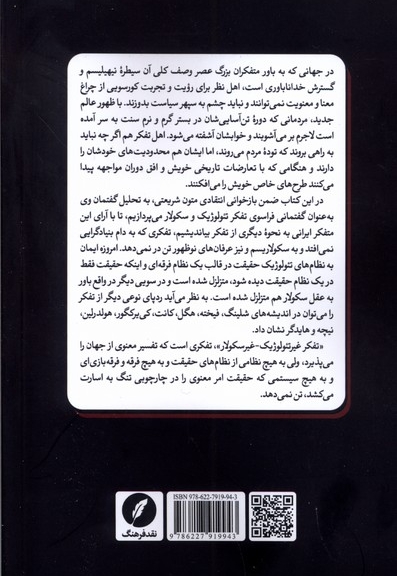 در جهانی که به باور متفکران بزرگ عصر وصف کلی آن سیطرهٔ نیهیلیسم و
گسترش خداناباوری است، اهل نظر برای رؤیت و تجربت کورسویی از چراغ
معنا و معنویت نمی‌توانند و نباید چشم به سپهر سیاست بدوزند. با ظهور عالم
جدید، مردمانی که دورهٔ تن‌آسایی‌شان در بستر گرم و نرم سنت به سر آمده
است لاجرم بر می‌آشوبند و خوابشان آشفته می‌شود. اهل تفکر هم اگر چه نباید
به راهی بروند که تودهٔ مردم می‌روند، اما ایشان هم محدودیت‌های خودشان را
دارند و هنگامی که با تعارضات تاریخی خویش و افق دوران مواجهه پیدا
می‌کنند طرح‌های خاص خویش را می‌افکنند.
در این کتاب ضمن بازخوانی انتقادی متون شریعتی، به تحلیل گفتمان وی
به‌عنوان گفتمانی فراسوی تفکر تئولوژیک و سکولار می‌پردازیم، تا با آرای این
متفکر ایرانی به نحوهٔ دیگری از تفکر بیاندیشیم، تفکری که به دام بنیادگرایی
نمی‌افتد و به سکولاریسم و نیز عرفان‌های نوظهور تن در نمی‌دهد. امروزه ایمان
به نظام‌های تئولوژیک حقیقت در قالب یک نظام فرقه‌ای و اینکه حقیقت فقط
در یک نظام حقیقت دیده شود، متزلزل شده است و در سویی دیگر در واقع باور
به عقل سکولار هم متزلزل شده است. به نظر می‌آید ردپای نوعی دیگر از تفکر
را می‌توان در اندیشه‌های شلینگ، فیخته، هگل، کانت، کی‌یرکگور، هولدرلین،
نیچه و هایدگر نشان داد.
«تفکر غیرتئولوژیک-غیرسکولار»، تفکری است که تفسیر معنوی از جهان را
می‌پذیرد، ولی به هیچ نظامی از نظام‌های حقیقت و به هیچ فرقه و فرقه‌بازی‌ای
و به هیچ سیستمی که حقیقت امر معنوی را در چارچوبی تنگ به اسارت
می‌کشد، تن نمی‌دهد.
نقدفرهنگ
ISBN 978-622-7919-94-3
9 786227 919943